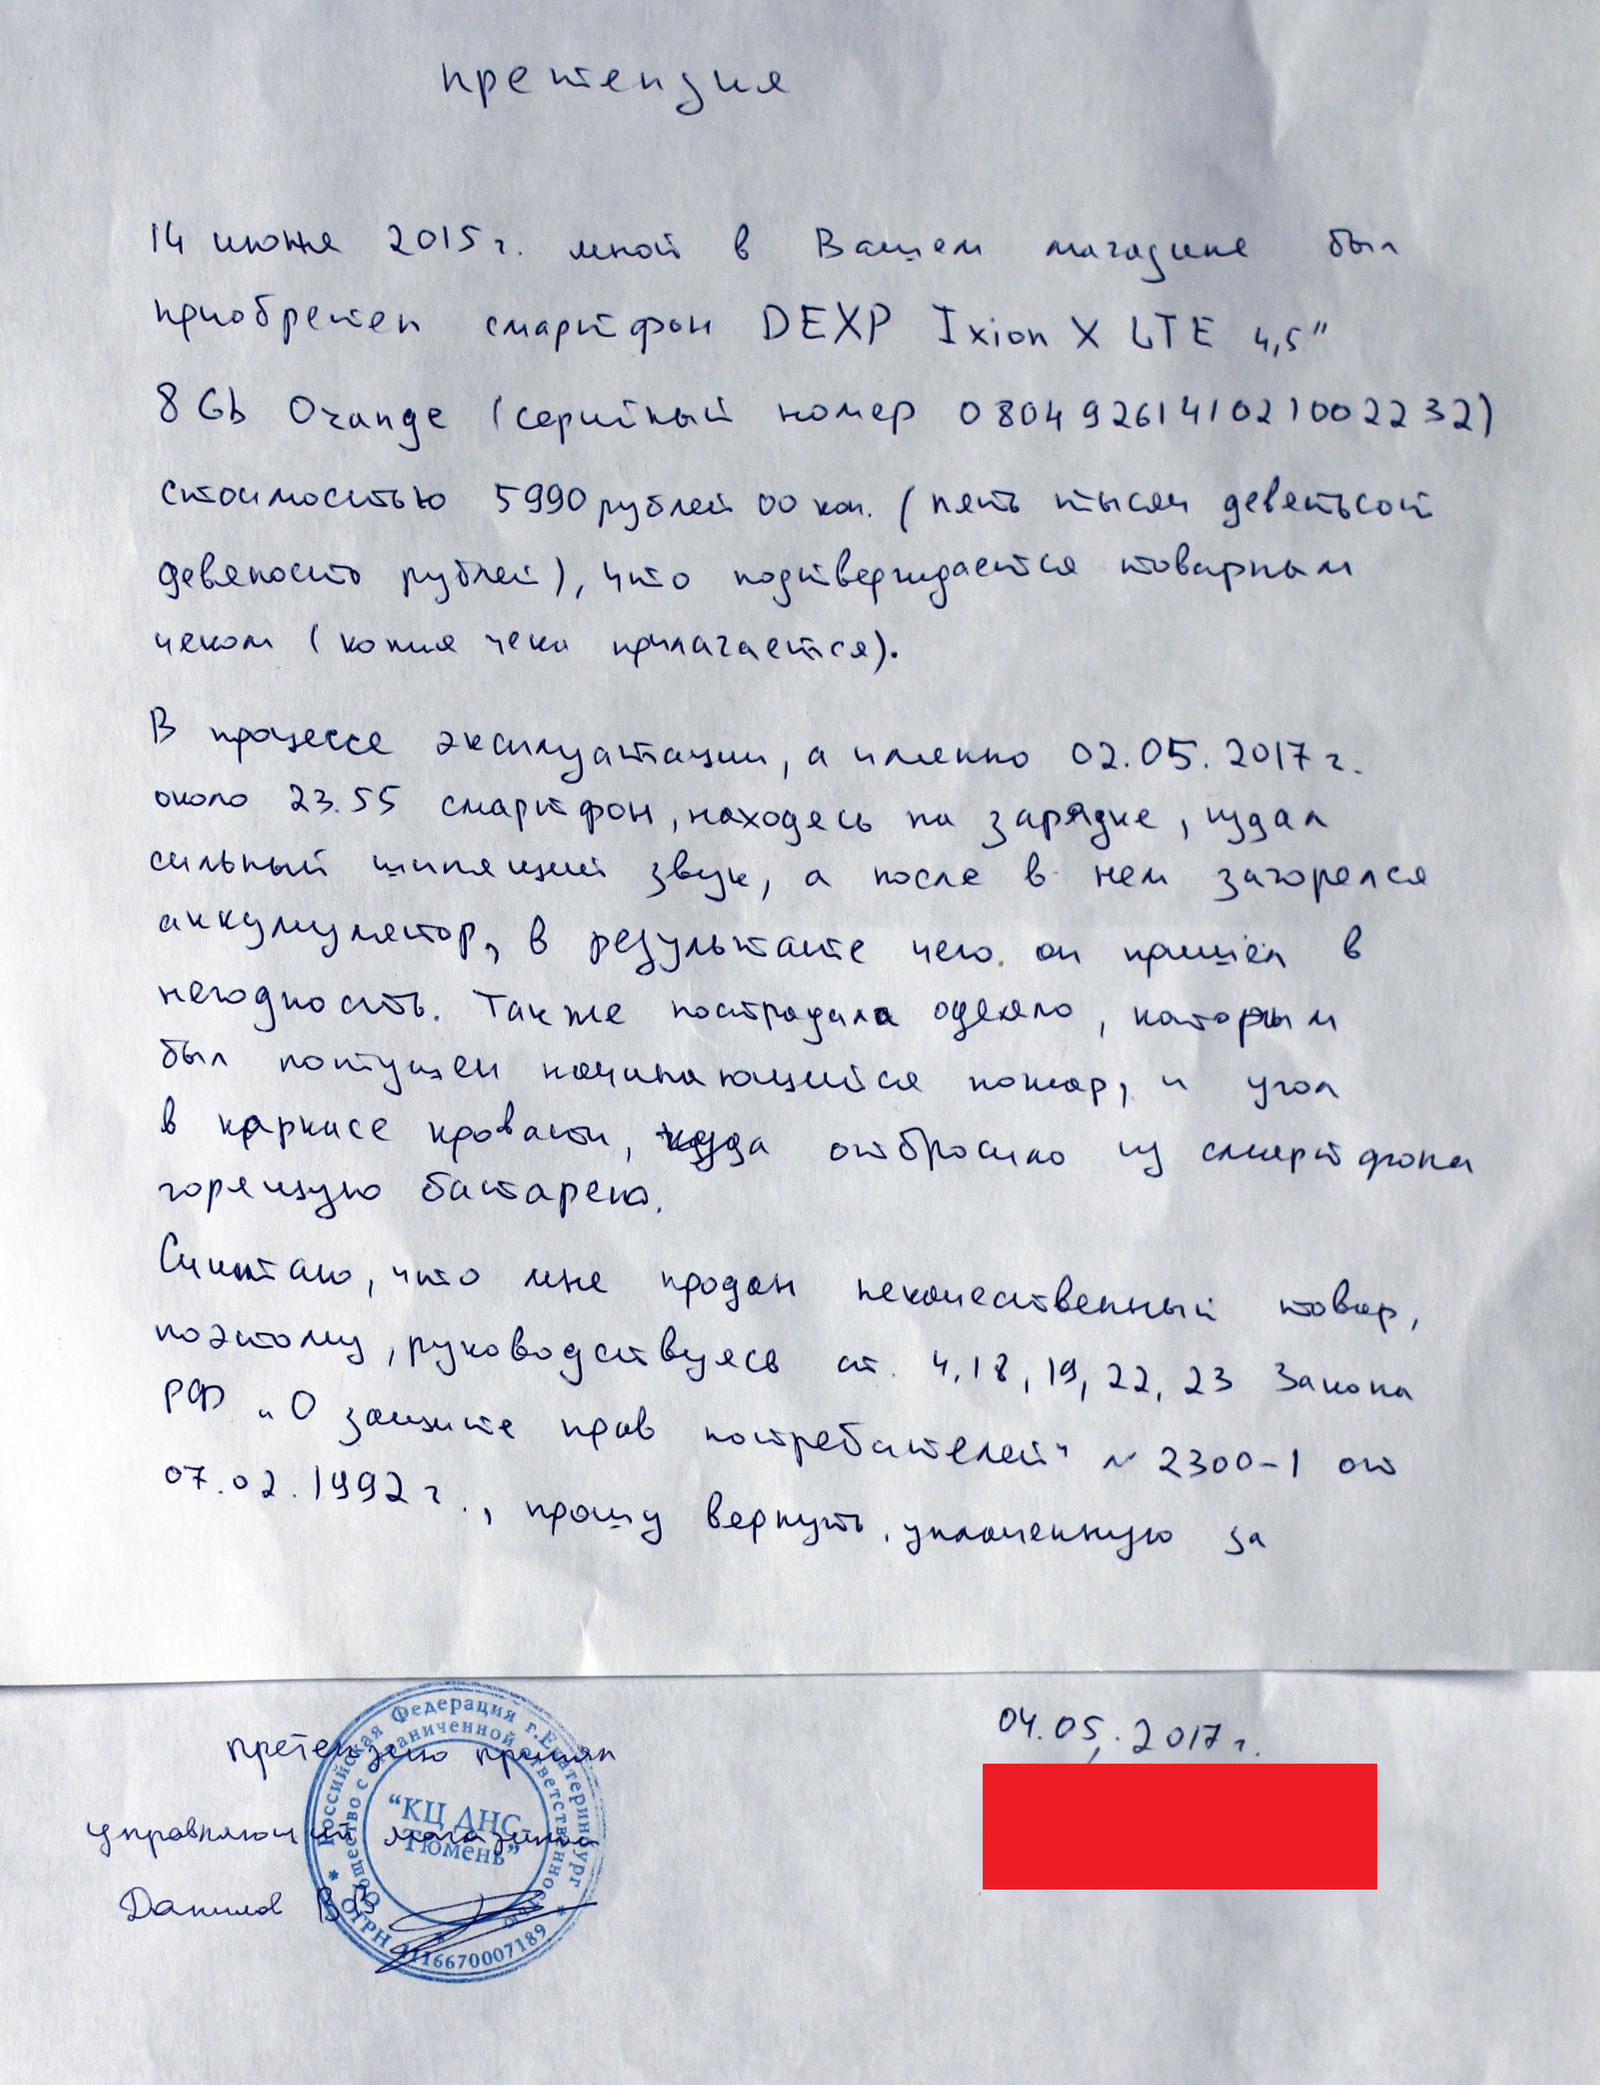 претензия
14 июня 2015 г. мной в Вашем магазине был
приобретен смартфон DEXP Ixion X LTE 4,5"
8 Gb Orange (серийный номер 0804926141021002232)
стоимостью 5990 рублей 00 коп. (пять тысяч девятьсот
девяносто рублей), что подтверждается товарным
чеком (копия чека прилагается).
В процессе эксплуатации, а именно 02.05.2017 г.
около 23.55 смартфон, находясь на зарядке, издал
сильный шипящий звук, а после в нем загорелся
аккумулятор, в результате чего он пришёл в
негодность. Также пострадала одеяло, которым
был потушен начинающийся пожар, и угол
в каркасе кровати, куда отбросило из смартфона
горящую батарею.
Считаю, что мне продан некачественный товар,
поэтому, руководствуясь ст. 4, 18, 19, 22, 23 Закона
РФ "О защите прав потребителей" № 2300-1 от
07.02.1992 г., прошу вернуть уплаченную за
04.05.2017 г.
претензию принял
управляющий магазином
Данилов В В
Российская Федерация г.Екатеринбург
Общество с ограниченной ответственностью
"КЦ ДНС-
Тюмень"
* ОГРН 1116670007189 *